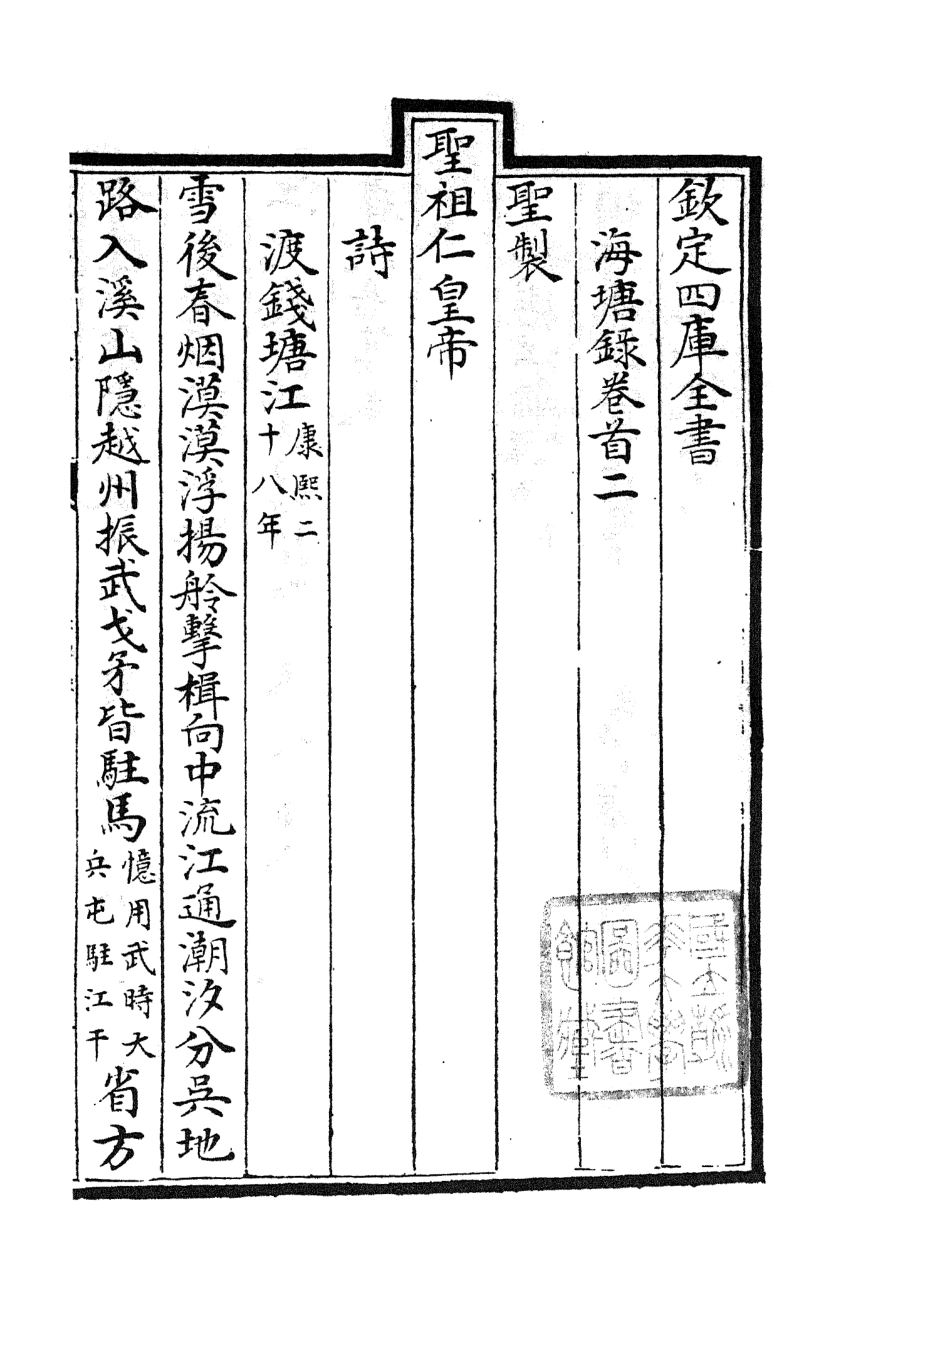 欽定四庫全書
海塘錄卷首二
聖製
聖祖仁皇帝
詩
渡錢塘江康熙二
十八年
雪後春烟漠漠浮揚舲擊楫向中流江通潮汐分吳地
路入溪山隱越州振武戈矛皆駐馬憶用武時大
兵屯駐江干省方